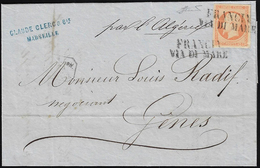 CLAUDE CLERC & Cie
MARSEILLE
par l'Algérie
FRANCIA
VIA DI MARE
FRANCIA
VIA DI MARE
Monsieur Louis Stadif
négociant
Gênes